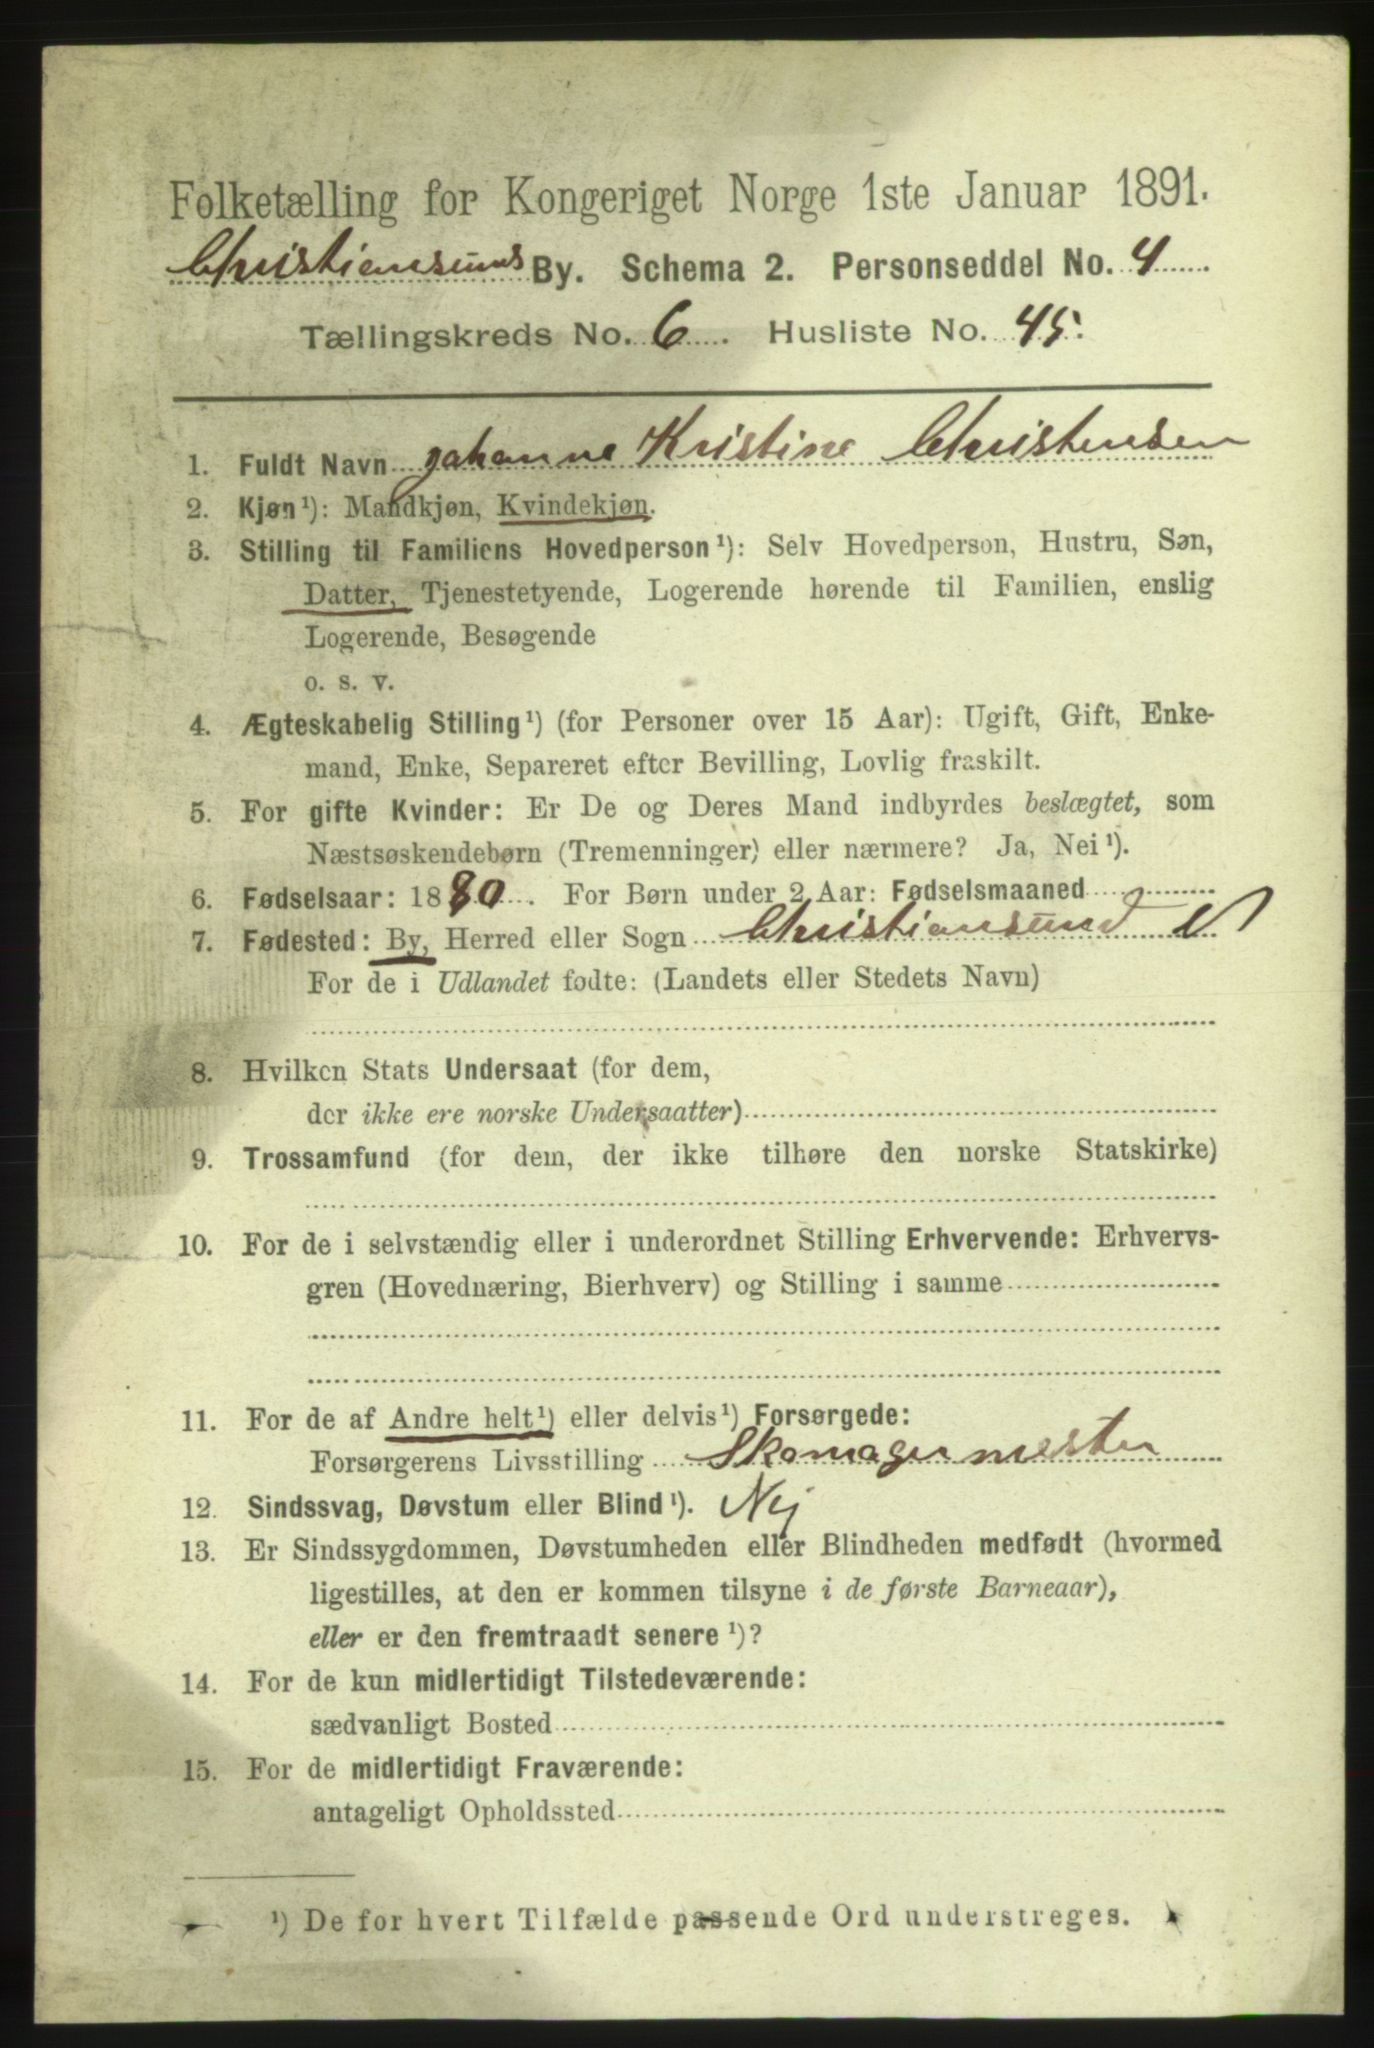 Folketælling for Kongeriget Norge 1ste Januar 1891.
Christiansunds By. Schema 2. Personseddel No. 4
Tællingskreds No. 6. Husliste No. 45.
1. Fuldt Navn Johanne Kristine Christensen
2. Kjøn¹): Mandkjøn, Kvindekjøn.
3. Stilling til Familiens Hovedperson¹): Selv Hovedperson, Hustru, Søn,
Datter, Tjenestetyende, Logerende hørende til Familien, enslig
Logerende, Besøgende
o. s. v.
4. Ægteskabelig Stilling¹) (for Personer over 15 Aar): Ugift, Gift, Enke-
mand, Enke, Separeret efter Bevilling, Lovlig fraskilt.
5. For gifte Kvinder: Er De og Deres Mand indbyrdes beslægtet, som
Næstsøskendebørn (Tremenninger) eller nærmere? Ja, Nei¹).
6. Fødselsaar: 1880. For Børn under 2 Aar: Fødselsmaaned
7. Fødested: By, Herred eller Sogn Christiansund N
For de i Udlandet fødte: (Landets eller Stedets Navn)
8. Hvilken Stats Undersaat (for dem,
der ikke ere norske Undersaatter)
9. Trossamfund (for dem, der ikke tilhøre den norske Statskirke)
10. For de i selvstændig eller i underordnet Stilling Erhvervende: Erhvervs-
gren (Hovednæring, Bierhverv) og Stilling i samme
11. For de af Andre helt¹) eller delvis¹) Forsørgede:
Forsørgerens Livsstilling Skomagermester
12. Sindssvag, Døvstum eller Blind¹). Nej
13. Er Sindssygdommen, Døvstumheden eller Blindheden medfødt (hvormed
ligestilles, at den er kommen tilsyne i de første Barneaar),
eller er den fremtraadt senere¹)?
14. For de kun midlertidigt Tilstedeværende:
sædvanligt Bosted
15. For de midlertidigt Fraværende:
antageligt Opholdssted
¹) De for hvert Tilfælde passende Ord understreges.